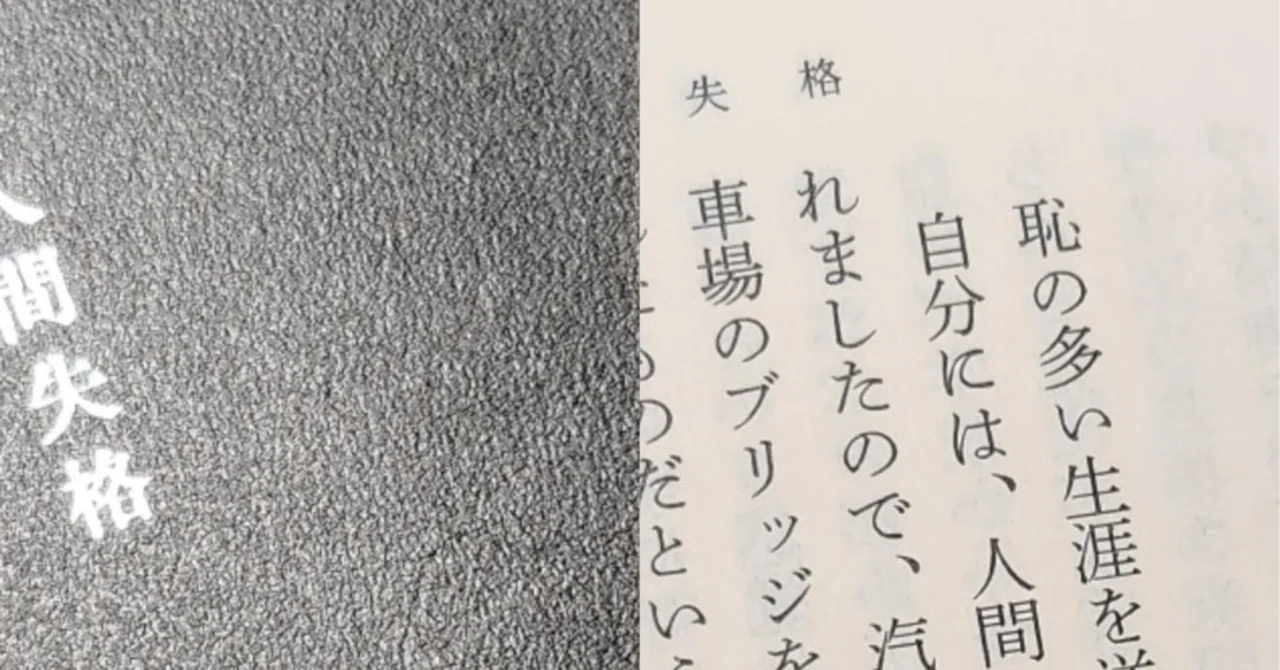 人間失格
失格
恥の多い生涯を
自分には、人間
れましたので、汽
車場のブリッジを
のだとい